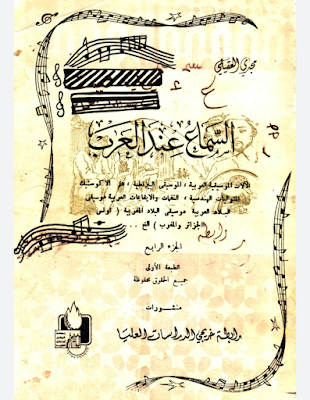 مجدي العقيلي
السماع عند العرب
الآلات الموسيقية العربية ، الموسيقى البيزنطية ، علم الاكوستيك
المتواليات الهندسية ، النغمات والايقاعات العربية موسيقى
البلاد العربية موسيقى البلاد المغربية ( تونس
الجزائر والمغرب ) الخ ...
الجزء الرابع
الطبعة الأولى
جميع الحقوق محفوظة
منشورات
رابطة خريجي الدراسات العليا